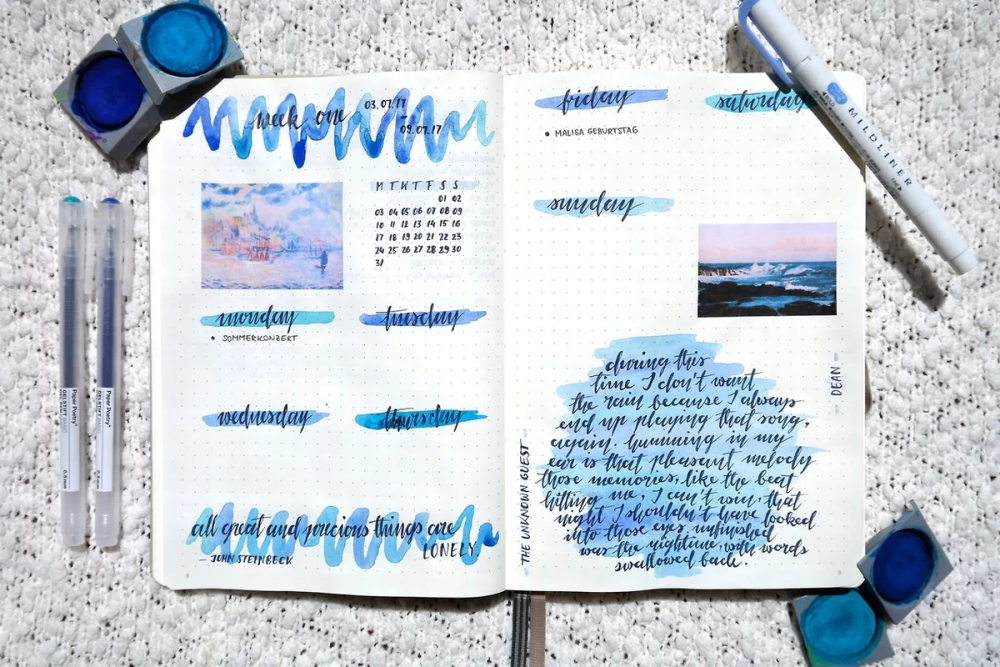 week one 03.07.17
09.07.17
M T W T F S S
01 02
03 04 05 06 07 08 09
10 11 12 13 14 15 16
17 18 19 20 21 22 23
24 25 26 27 28 29 30
31
monday
• SOMMERKONZERT
tuesday
wednesday
thursday
all great and precious things are
LONELY.
– JOHN STEINBECK
friday
• MALISA GEBURTSTAG
saturday
sunday
THE UNKNOWN GUEST
during this
time I don't want
the rain because I always
end up playing that song,
again. humming in my
ear is that pleasant melody
those memories, like the beat
hitting me, I can't win, that
night I shouldn't have looked
into those eyes unfinished
was the nightime, with words
swallowed back.
– DEAN –
MILDLINER
Paper Poetry
GELSTIFT
Paper Poetry
GELSTIFT